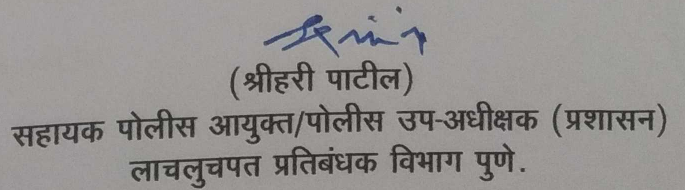 (श्रीहरी पाटील)
सहायक पोलीस आयुक्त/पोलीस उप-अधीक्षक (प्रशासन)
लाचलुचपत प्रतिबंधक विभाग पुणे.